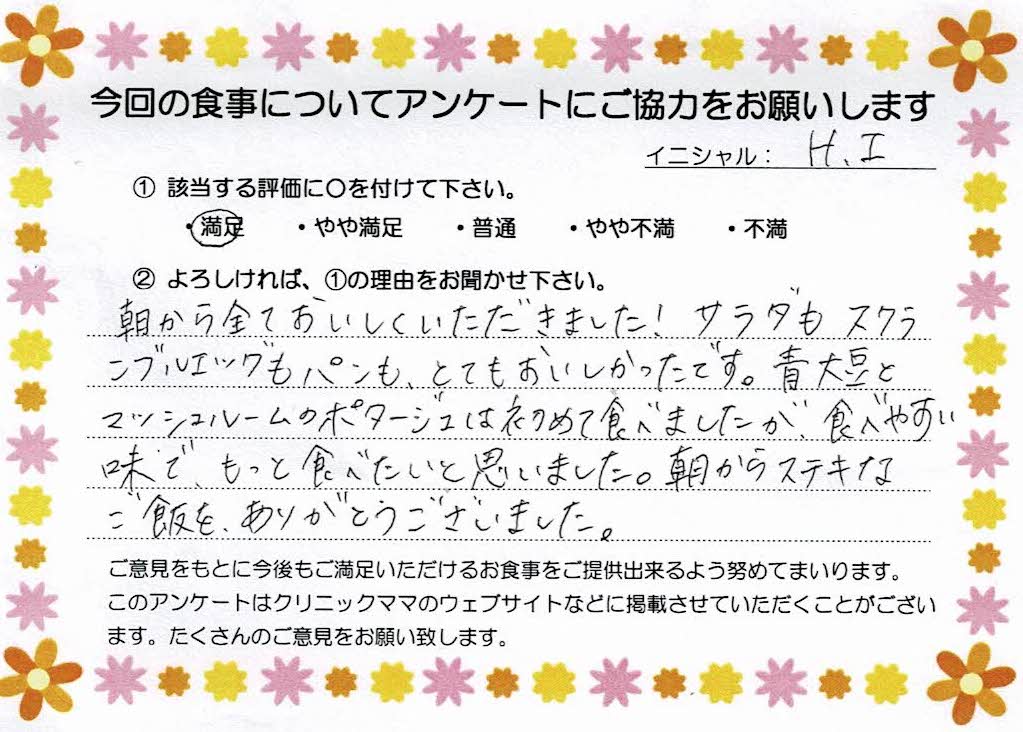 今回の食事についてアンケートにご協力をお願いします
イニシャル： H.I
① 該当する評価に〇を付けて下さい。
・満足 ・やや満足 ・普通 ・やや不満 ・不満
② よろしければ、①の理由をお聞かせ下さい。
朝から全ておいしくいただきました! サラダも スクラ
ンブルエッグもパンも、とてもおいしかったです。青大豆と
マッシュルームのポタージュは初めて食べましたが、食べやすい
味で、もっと食べたいと思いました。朝からステキな
ご飯を、ありがとうございました。
ご意見をもとに今後もご満足いただけるお食事をご提供出来るよう努めてまいります。
このアンケートはクリニックママのウェブサイトなどに掲載させていただくことがござい
ます。たくさんのご意見をお願い致します。